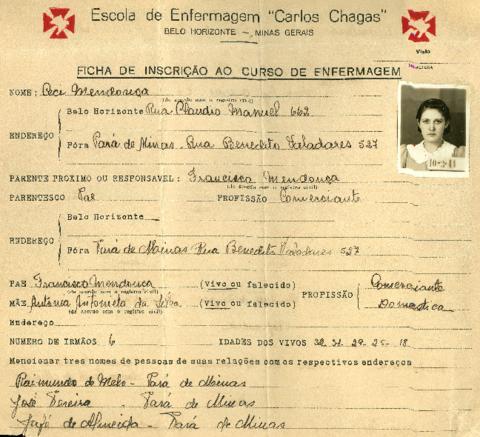 Escola de Enfermagem "Carlos Chagas"
BELO HORIZONTE — MINAS GERAIS
Visto
FICHA DE INSCRIÇÃO AO CURSO DE ENFERMAGEM
NOME: Ceci Mendonça
(de acordo com o registro civil)
Belo Horizonte Rua Claudio Manuel 662
ENDEREÇO
Fóra Pará de Minas. Rua Benedito Valadares 527
10-2-41
PARENTE PROXIMO OU RESPONSAVEL: Francisco Mendonça
(de acordo com o registro civil)
PARENTESCO Pae PROFISSÃO Comerciante
Belo Horizonte
ENDEREÇO
Fóra Pará de Minas Rua Benedito Valadares 527
PAE Francisco Mendonça (Vivo ou falecido) Comerciante
(de acordo com o registro civil)
PROFISSÃO
MÃE Antonia Antonieta da Silva (Vivo ou falecido) Domestica
(de acordo com o registro civil)
Endereço
NUMERO DE IRMÃOS 6 IDADES DOS VIVOS 32 31 29-25-18
Mencionar tres nomes de pessoas de suas relações com os respectivos endereços
Raimundo de Melo - Pará de Minas
José Pereira - Pará de Minas
de Almeida - Pará de Minas